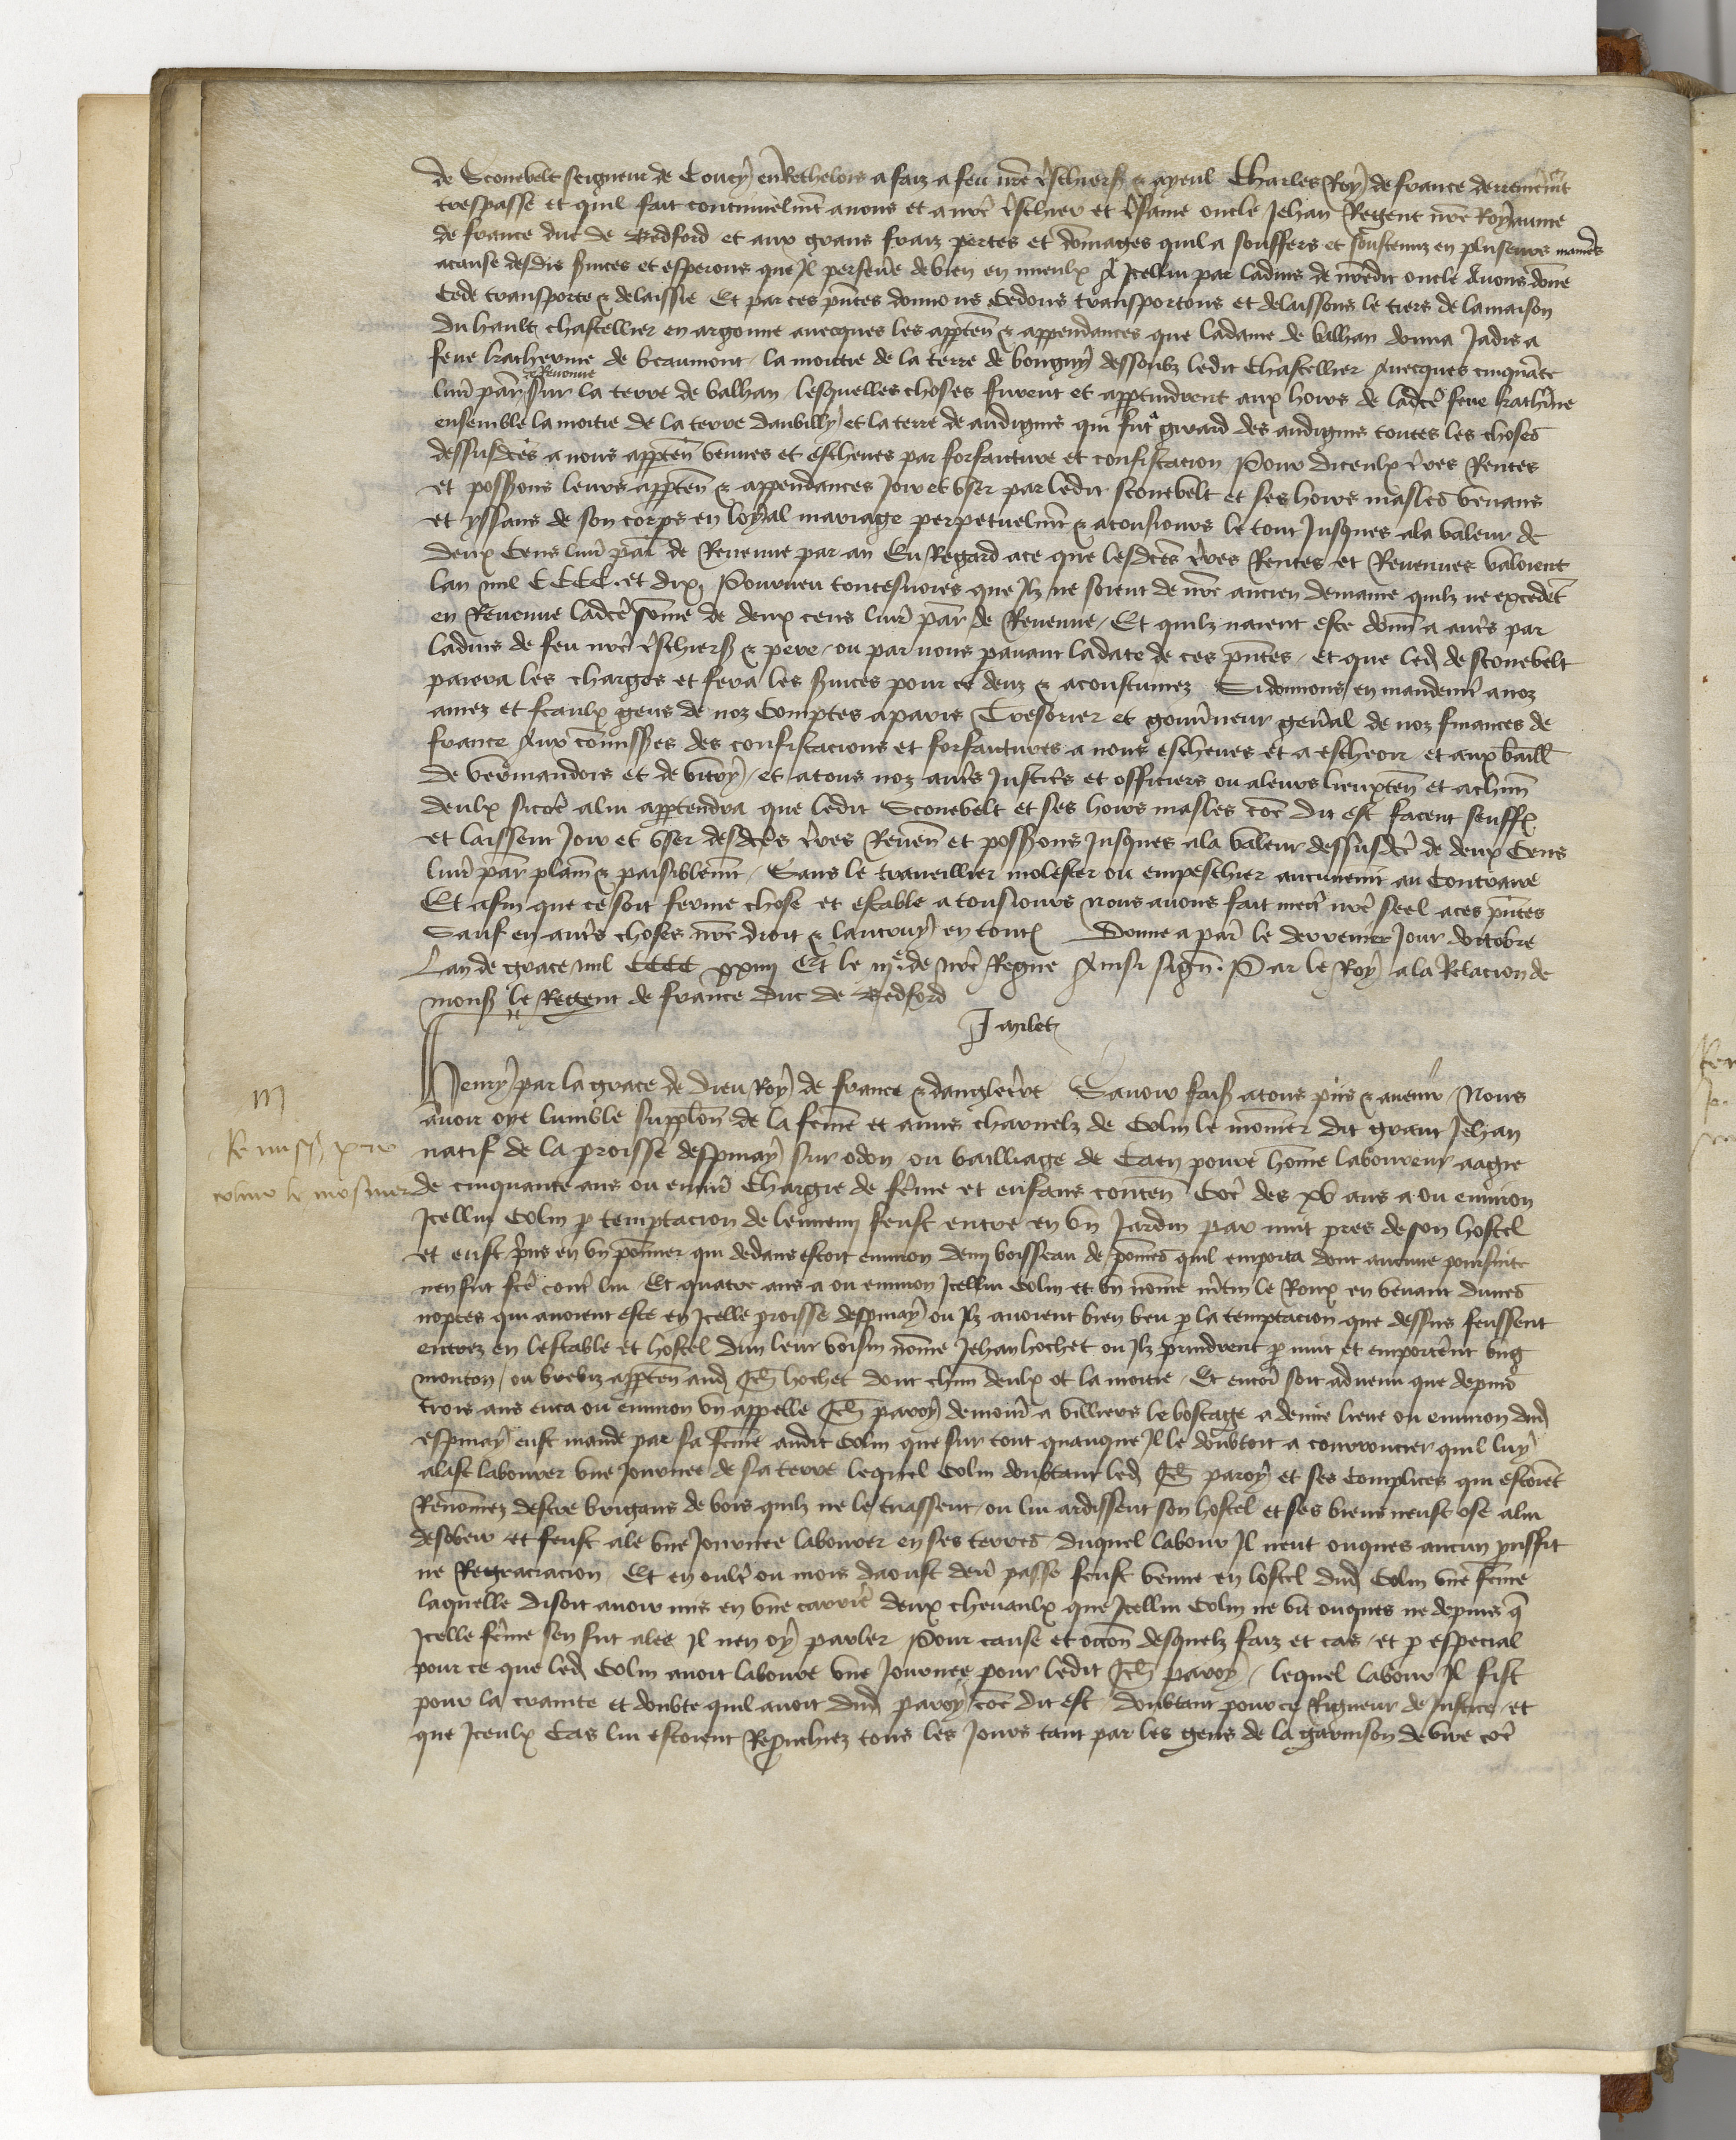 de Sconevelt seigneur de Coucy en Rethelois a faiz a feu nre treschier sr & ayeul Charles Roy de france derrenierement
trespasse et quil fait continuelmt a nous et a nre treschier et tresame oncle Jehan Regent nre Royaume
de france duc de Bedford et aux grans fraiz pertes et dommages quil a souffers et soustenuz en pluseurs manieres
a cause desdis services et esperons que Il persevere de bien en mieulx A Icellui par ladvis de nredit oncle Avons donne
Cede transporte & delaissie Et par ces pntes donnons Cedons transportons et delaissons le tiers de la maison
du hault chastellier en argonne avecques les apptenn & appendances que la dame de balhan donna Jadis a
feue katherine de beaumont la moitie de la terre de bougny dessoubz ledit Chastellier Avecques cinquante
livr par de Revenue sur la terre de balhan lesquelles choses furent et apptindrent aux hoirs de ladce feue kathine
ensemble la moitie de la terre dambilly et la terre de andigine qui fut a girard des andigins toutes les choses
dessusdces a nous apptenn venues et escheues par forfaiture et confiscation Pour diceulx tres Rentes
et possions leurs apptenn & appendances Joir et user par ledit sconevelt et ses hoirs masles venans
et yssans de son corps en loyal mariage perpetuelmt & a tousiours le tout Jusques a la valeur de
deux Cens livr par de Revenue par an Eu Regard a ce que lesdces tres Rentes et Revenues valoient
lan mil CCCC et dix Pourveu toutesvoies que Ilz ne soient de nre ancien demaine quilz ne excedent
en Revenue ladce somme de deux cens livr par de Revenue Et quilz naient este donn a aut's par
ladvis de feu nre treschier sr & pere ou par nous pavant la date de ces pntes et que led de sconevelt
paiera les charges et fera les svices pour ce deuz & acoustumez Si donnons en mandemt a noz
amez et feaulx gens de noz Comptes a paris Tresorier et gouvneur genal de noz finances de
france Aux commissres des confiscacions et forfaitures a nous escheues et a escheoir et aux baill
de vermandois et de vitry et a tous noz aut's Justiciers et officiers ou a leurs lieuxten et a chun
deulx sicoe a lui apptendra que ledit Sconevelt et ses hoirs masles coe dit est facent seuffr
et laissent Joir et user desdces tres Reven et possions Jusques a la valeur dessusdce de deux Cens
livr par plain & paisiblemt Sans le travaillier molester ou empeschier aucunemt au Contraire
Et afin que ce soit ferme chose et estable a tousiours nous avons fait mectr nre seel a ces pntes
Sauf en aut's choses nre droit & lautruy en toutes Donne a par le derrenier Jour doctobre
Lan de grace mil CCCC xxiiii Et le iiie de nre Regne Ainsi sign. Par le Roy a la Relacion de
monsr le Regent de france duc de Bedford
J milet
Henry par la grace de dieu Roy de france & dangleterre Savoir faisons a tous pns & avenir Nous
avoir oye lumble supplon de la femme et amis charnelz de Colin le monnier dit grant Jehan
natif de la proisse despinay sur odon ou bailliage de Caen povre homme laboureur aagie
de cinquante ans ou environ Chargie de femme et enfans conten Coe des xv ans a ou environ
Icellui Colin p temptacion de lennemi feust entre en un Jardin par nuit pres de son hostel
et eust prins en un pommier qui dedans estoit environ demi boisseau de pommes quil emporta dont aucune poursuite
nen fut fce contr lui Et quatre ans a ou environ Icellui Colin et un nomme mtin le Roux en venant dunes
nopces qui avoient este en Icelle proisse despinay ou Ilz avoient bien beu p la temptacion que dessus feussent
entrez en lestable et hostel dun leur voisin nomme Jehan hochet ou Ilz prindrent p nuit et emporternt ung
mouton ou brebiz apptenn aud Jeh hochet dont chun deulx ot la moitie Et encor soit advenu que depuis
trois ans enca ou environ un appelle Jeh paroy demour a villiers le bocage a demie lieue ou environ dud
espinay eust mande par sa femme audit Colin que sur tout quanque Il le doubtoit a courroucier quil luy
alast labourer une Journee de sa terre lequel Colin doubtant led Jeh paroy et ses Complices qui estoient
Renommez destre brigans de bois quilz ne le tuassent ou lui ardissent son hostel et ses biens neust ose a lui
desobeir et feust ale une Journee labourer en ses terres duquel labour Il neut onques aucun prouffit
ne Regraciacion Et en oultr ou mois daoust derr passe feust venue en lostel dud Colin une femme
laquelle disoit avoir mis en une carrie deux chevaulx que Icellui Colin ne vit onques ne depuis q
Icelle femme sen fut alee Il nen oy parler Pour cause et occon desquelz faiz et cas et p especial
pour ce que led Colin avoit laboure une Journee pour ledit Jeh paroy lequel labour Il fist
pour la crainte et doubte quil avoit dud paroy coe dit est doubtant pour ce Rigueur de Justice et
que Iceulx Cas lui estoient Reprouchiez tous les Jours tant par les gens de la garnison de vire coe
iii
Remission pour
colin le mosnier